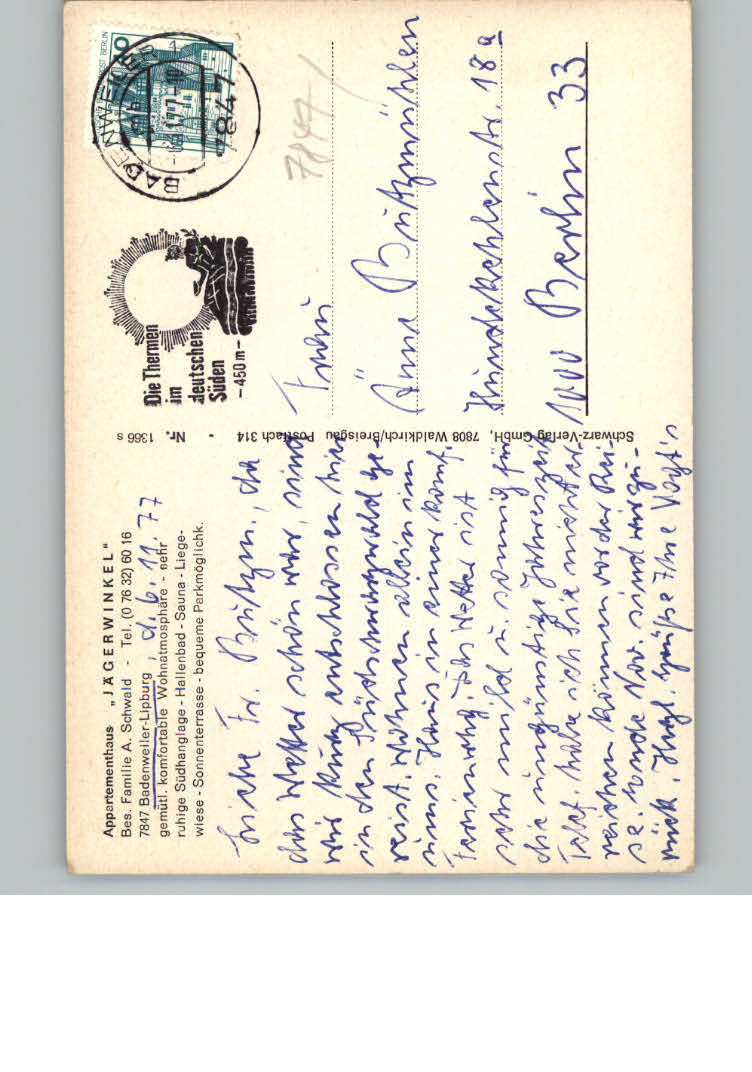 Appartementhaus „JÄGERWINKEL"
Bes. Familie A. Schwald - Tel. (0 76 32) 60 16
7847 Badenweiler-Lipburg, d. 6. 11. 77
gemütl. komfortable Wohnatmosphäre - sehr
ruhige Südhanglage - Hallenbad - Sauna - Liege-
wiese - Sonnenterrasse - bequeme Parkmöglichk.
Liebe Fr. Butzm., da
das Wetter schön war, sind
wir kurz entschlossen hier
in den Südschwarzwald ge-
reist. Wohnen allein im
uns. Haus in einer komf.
Ferienwhg. Das Wetter ist
sehr mild u. sonnig für
die ungünstige Jahreszeit
Telef. habe ich Sie nicht er-
reichen können vor der Rei-
se. Ende Nov. sind wir zu-
rück. Herzl. Grüße Ihre Vogt's
Schwarz-Verlag GmbH, 7808 Waldkirch/Breisgau Postfach 314 - Nr. 1366 s
Die Thermen
im
deutschen
Süden
- 450 m -
BADENWEILER 1
77-10
7847
POST BERLIN
7847/
Frau
Änne Butzmühlen
Hundekehlenstr. 18a
1000 Berlin 33